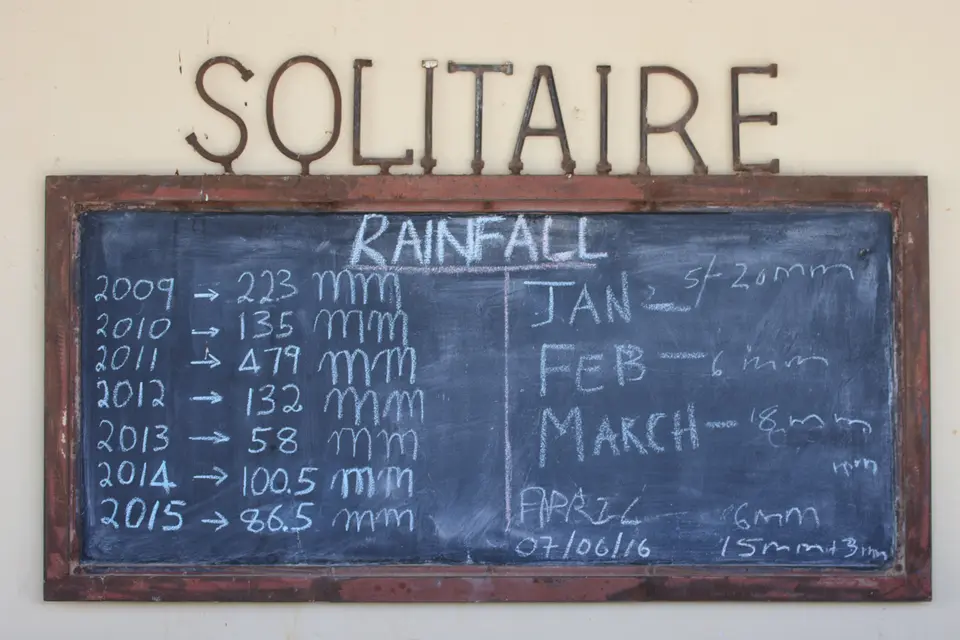 SOLITAIRE
RAINFALL
2009 → 223 mm
2010 → 135 mm
2011 → 479 mm
2012 → 132 mm
2013 → 58 mm
2014 → 100.5 mm
2015 → 86.5 mm
JAN 20mm
FEB — 6 mm
MARCH — 18mm
mm
APRIL 6mm
07/06/16 15mm+3mm